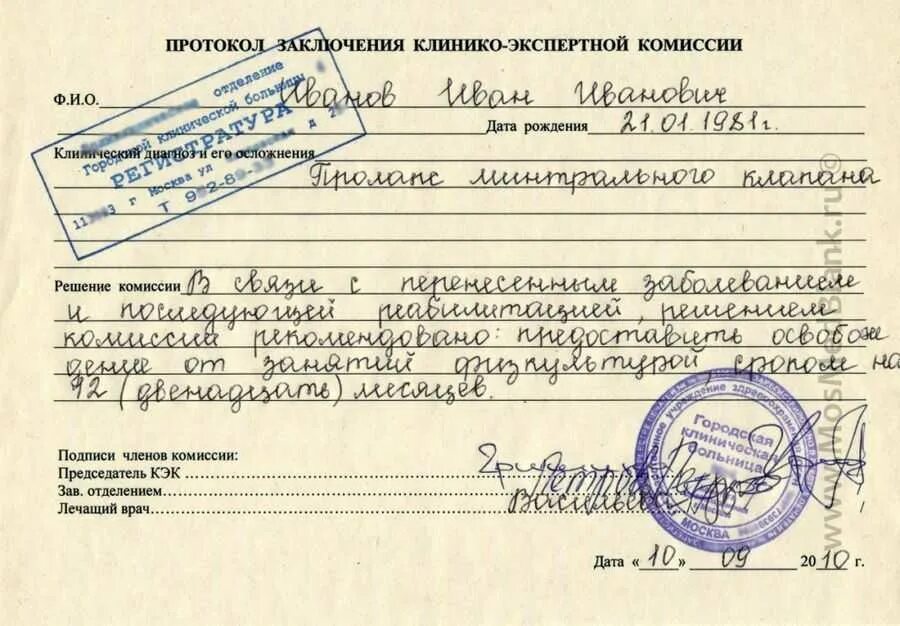 ПРОТОКОЛ ЗАКЛЮЧЕНИЯ КЛИНИКО-ЭКСПЕРТНОЙ КОМИССИИ
отделение
Городской клинической больницы
РЕГИСТРАТУРА
г Москва ул
Ф.И.О. Иванов Иван Иванович
Дата рождения 21.01.1981г.
Клинический диагноз и его осложнения
Пролапс минтрального клапана
Решение комиссии В связи с перенесенным заболеванием
и последующей реабилитацией, решением
комиссии рекомендовано: предоставить освобож
дение от занятий физкультурой сроком на
12 (двенадцать) месяцев.
Городская
клиническая
больница
МОСКВА
Подписи членов комиссии:
Председатель КЭК
Зав. отделением Петров
Лечащий врач
Дата «10» 09 2010 г.
www.MosMedBlank.ru©